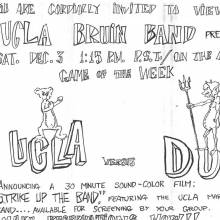 ARE CORDIALLY INVITED TO VIEW
UCLA BRUIN BAND
SAT. DEC. 3 1:15 P.M. P.S.T. ON THE A
GAME OF THE WEEK
UCLA VERSUS DU
ANNOUNCING A 30 MINUTE SOUND-COLOR FILM:
"STRIKE UP THE BAND," FEATURING THE UCLA MAR
AND.... AVAILABLE FOR SCREENING BY YOUR GROUP.